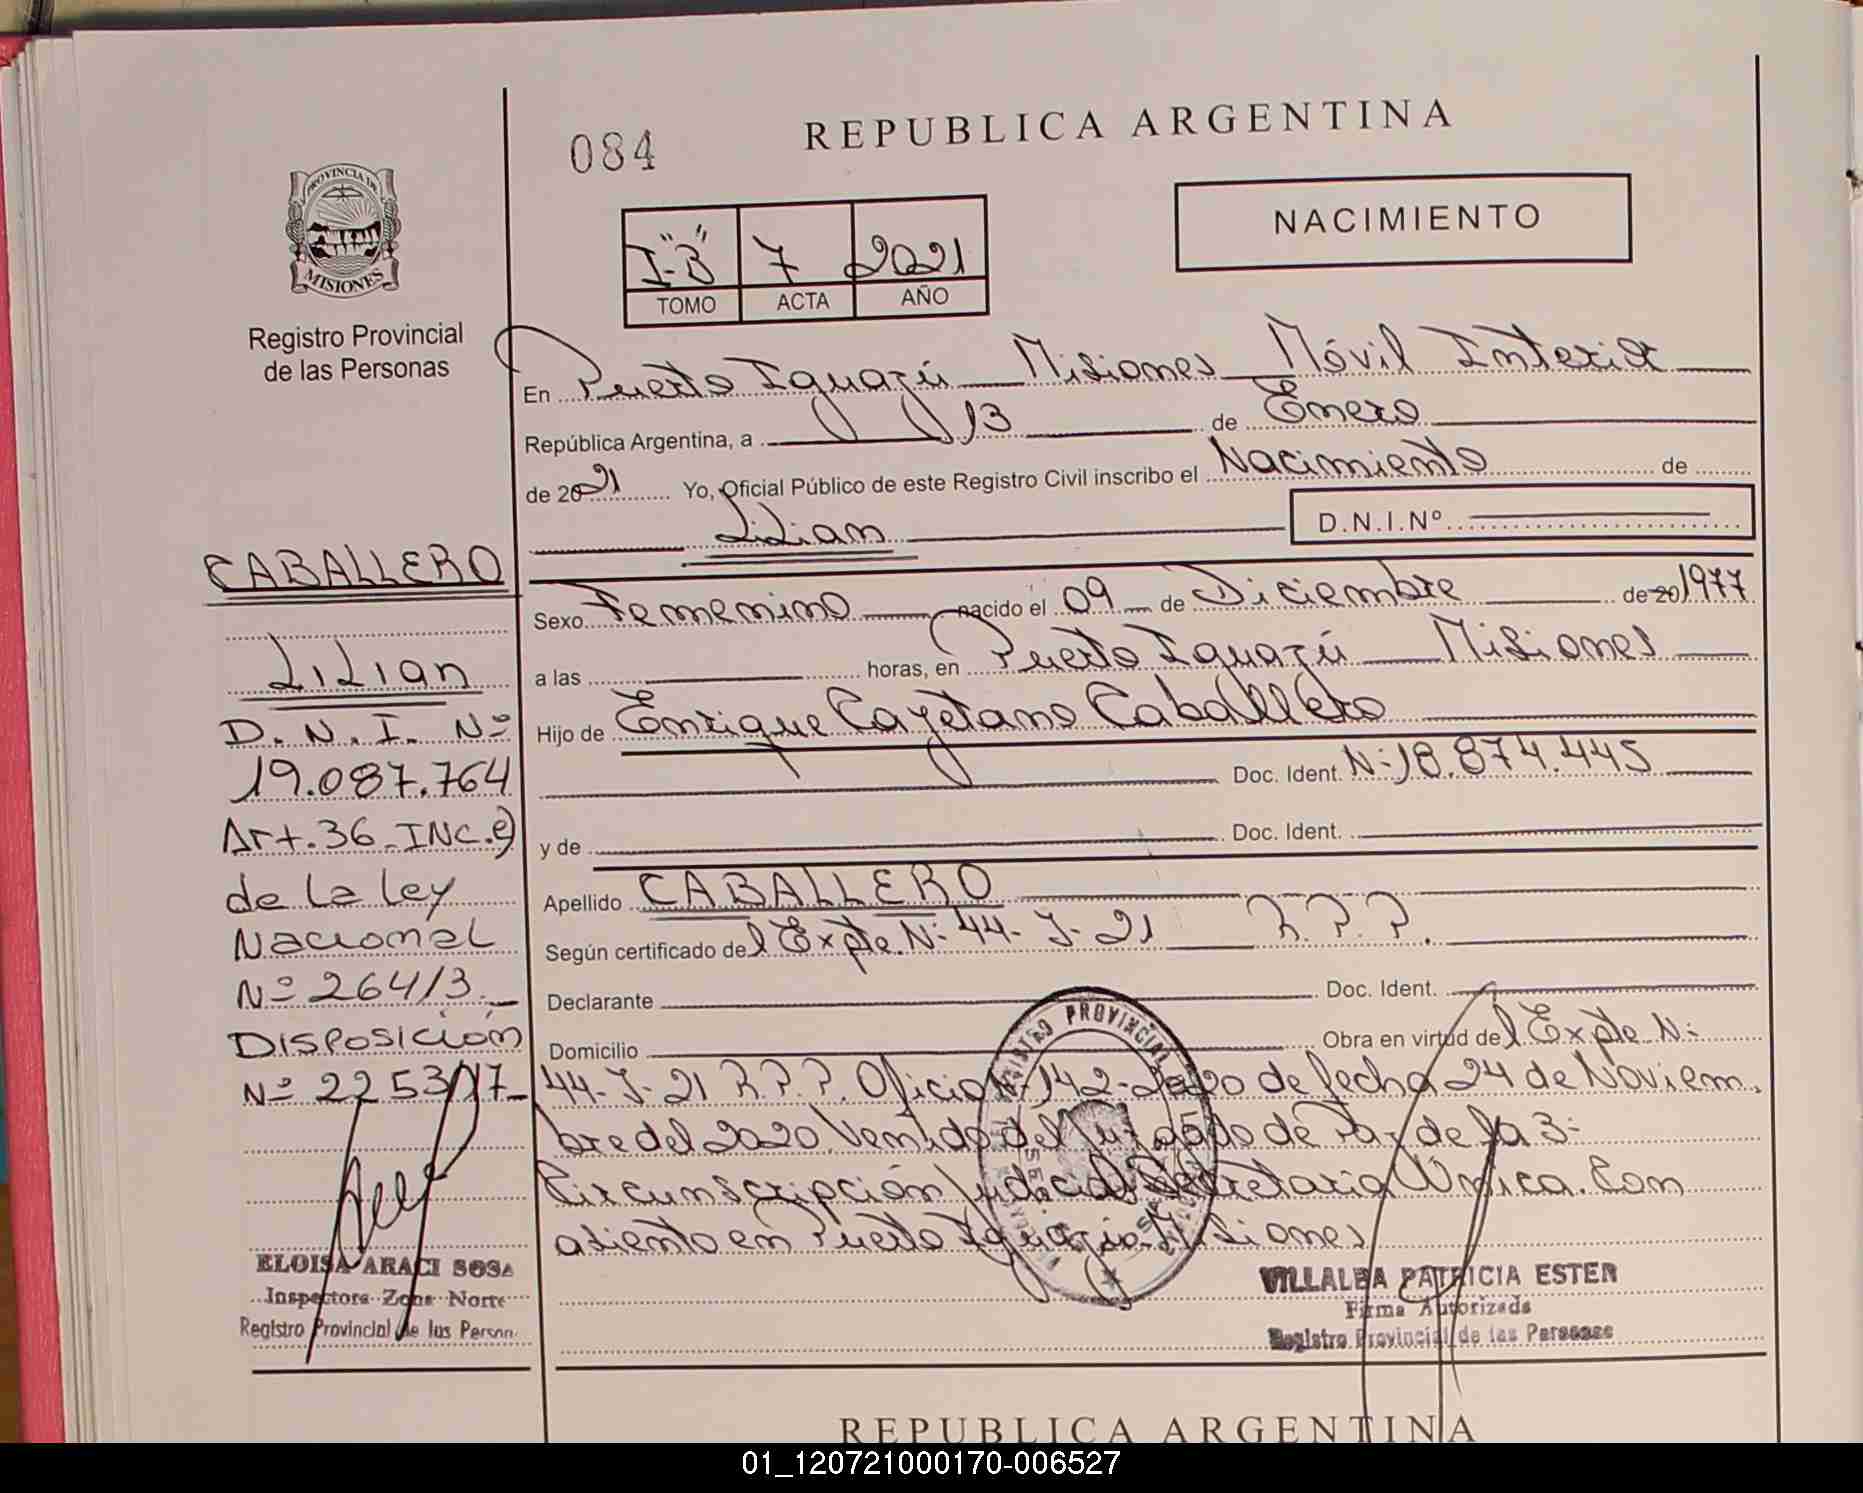 084
REPUBLICA ARGENTINA
PROVINCIA DE
MISIONES
Registro Provincial
de las Personas
I-"B" 7 2021
TOMO ACTA AÑO
NACIMIENTO
En Puerto Iguazú Misiones Móvil Interior
República Argentina, a 13 de Enero
de 2021 Yo, Oficial Público de este Registro Civil inscribo el Nacimiento de
Lilian D.N.I.Nº
Sexo Femenino nacido el 09 de Diciembre de 20 1977
a las horas, en Puerto Iguazú Misiones
Hijo de Enrique Cayetano Caballero
Doc. Ident. Nº 18.874.445
y de Doc. Ident.
Apellido CABALLERO
Según certificado del Expte. Nº 44- J- 21 R.P.P.
Declarante Doc. Ident.
Domicilio Obra en virtud del Expte Nº
44- J- 21 R.P.P. Oficio Nº 142-2020 de fecha 24 de Noviem
bre del 2020 Venido del Juzgado de Paz de la 3º
Circunscripción Judicial Secretaria Única. Con
asiento en Puerto Iguazú Misiones
CABALLERO
LiLian
D.N.I. Nº
19.087.764
Art.36 INC.e)
de La Ley
Nacional
Nº 26413
DISPOSICIÓN
Nº 2253/17
ELOISA ARACI SOSA
Inspectora Zona Norte
Registro Provincial de las Person
REGISTRO PROVINCIAL
VILLALBA PATRICIA ESTER
Firma Autorizada
Registro Provincial de las Personas
REPUBLICA ARGENTINA
01_120721000170-006527